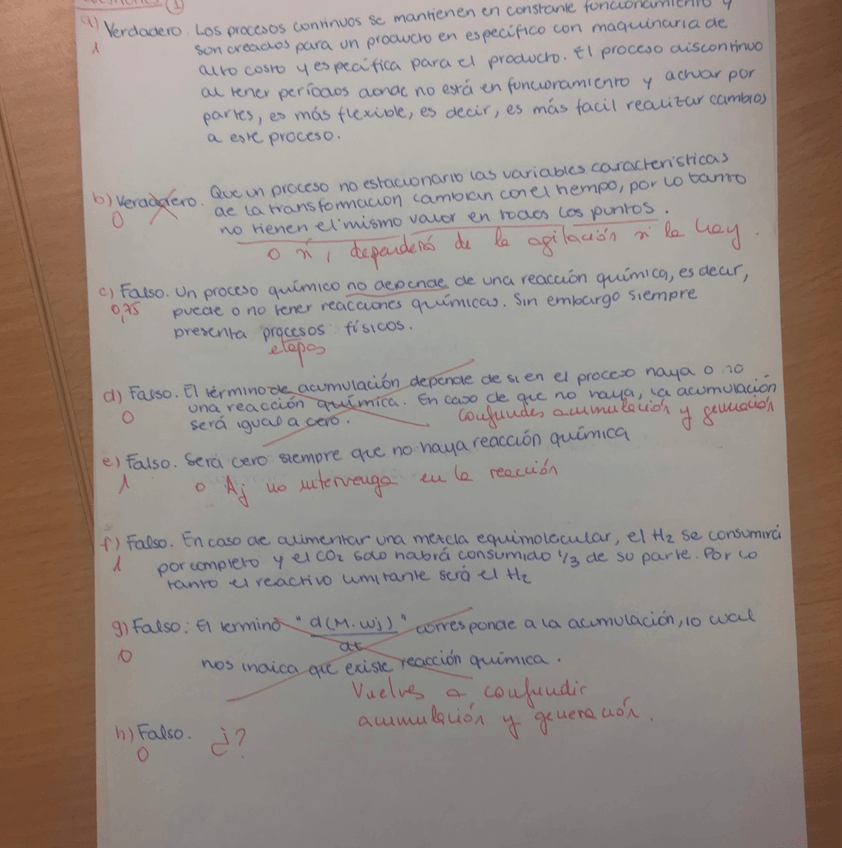 ①
a) Verdadero. Los procesos continuos se mantienen en constante funcionamiento y
1
son creados para un producto en específico con maquinaria de
alto costo y específica para el producto. El proceso discontinuo
al tener períodos donde no está en funcionamiento y actuar por
partes, es más flexible, es decir, es más facil realizar cambios
a este proceso.
b) Verdadero. Que un proceso no estacionario las variables características
0
de la transformación cambian con el tiempo, por lo tanto
no tienen el mismo valor en todos los puntos.
o sí, dependerá de la agitación si la hay.
c) Falso. Un proceso químico no depende de una reacción química, es decir,
0,75
puede o no tener reacciones químicas. Sin embargo siempre
presenta procesos físicos.
etapas
d) Falso. El término de acumulación depende de si en el proceso haya o no
0
una reacción química. En caso de que no haya, la acumulación
será igual a cero.
confundes acumulación y generación
e) Falso. Será cero siempre que no haya reacción química
1
o Aj no intervenga en la reacción
f) Falso. En caso de alimentar una mezcla equimolecular, el H2 se consumirá
1
por completo y el CO2 solo habrá consumido 1/3 de su parte. Por lo
tanto el reactivo limitante será el H2
g) Falso: El termino "d(M.wj)/dt" corresponde a la acumulación, lo cual
0
nos indica que existe reacción química.
Vuelves a confundir
acumulación y generación.
h) Falso. ¿?
0